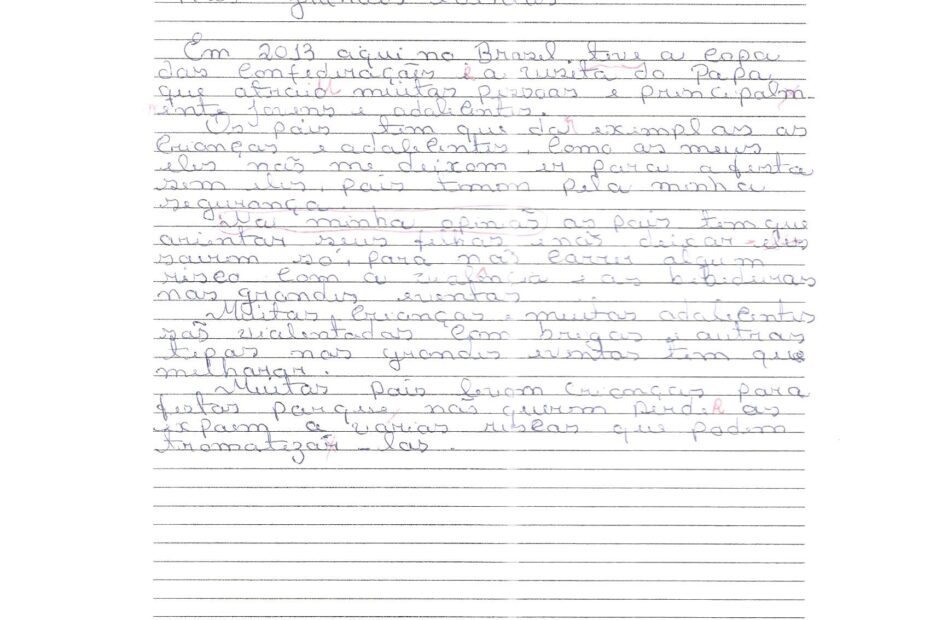 grandes eventos
Em 2013 aqui no Brasil teve a copa
das confeduraçãis e a vusita do Papa,
que atraiu muitas pessoas e principalm-
ente jovens e adolentis.
Os pais tem que dar exemplos as
crianças e adolelentis, como os meus
eles não me deixom ir para a festa
sem eles, pois tomon pela minha
segurança.
Na minha opinão os pais tem que
orientar seus filhos e não deixar eles
sairom só, para não correr algum
risco com a violência e as bebideras
nos grandes eventos
Muitas crianças e muitos adolelentes
são violentados com brigas e outros
tipos nos grandes eventos tem que
milhorar.
Muitos pais levom crianças para
festas porque não querem perder as
expoem a vários riscos que podem
tromatizar-las.